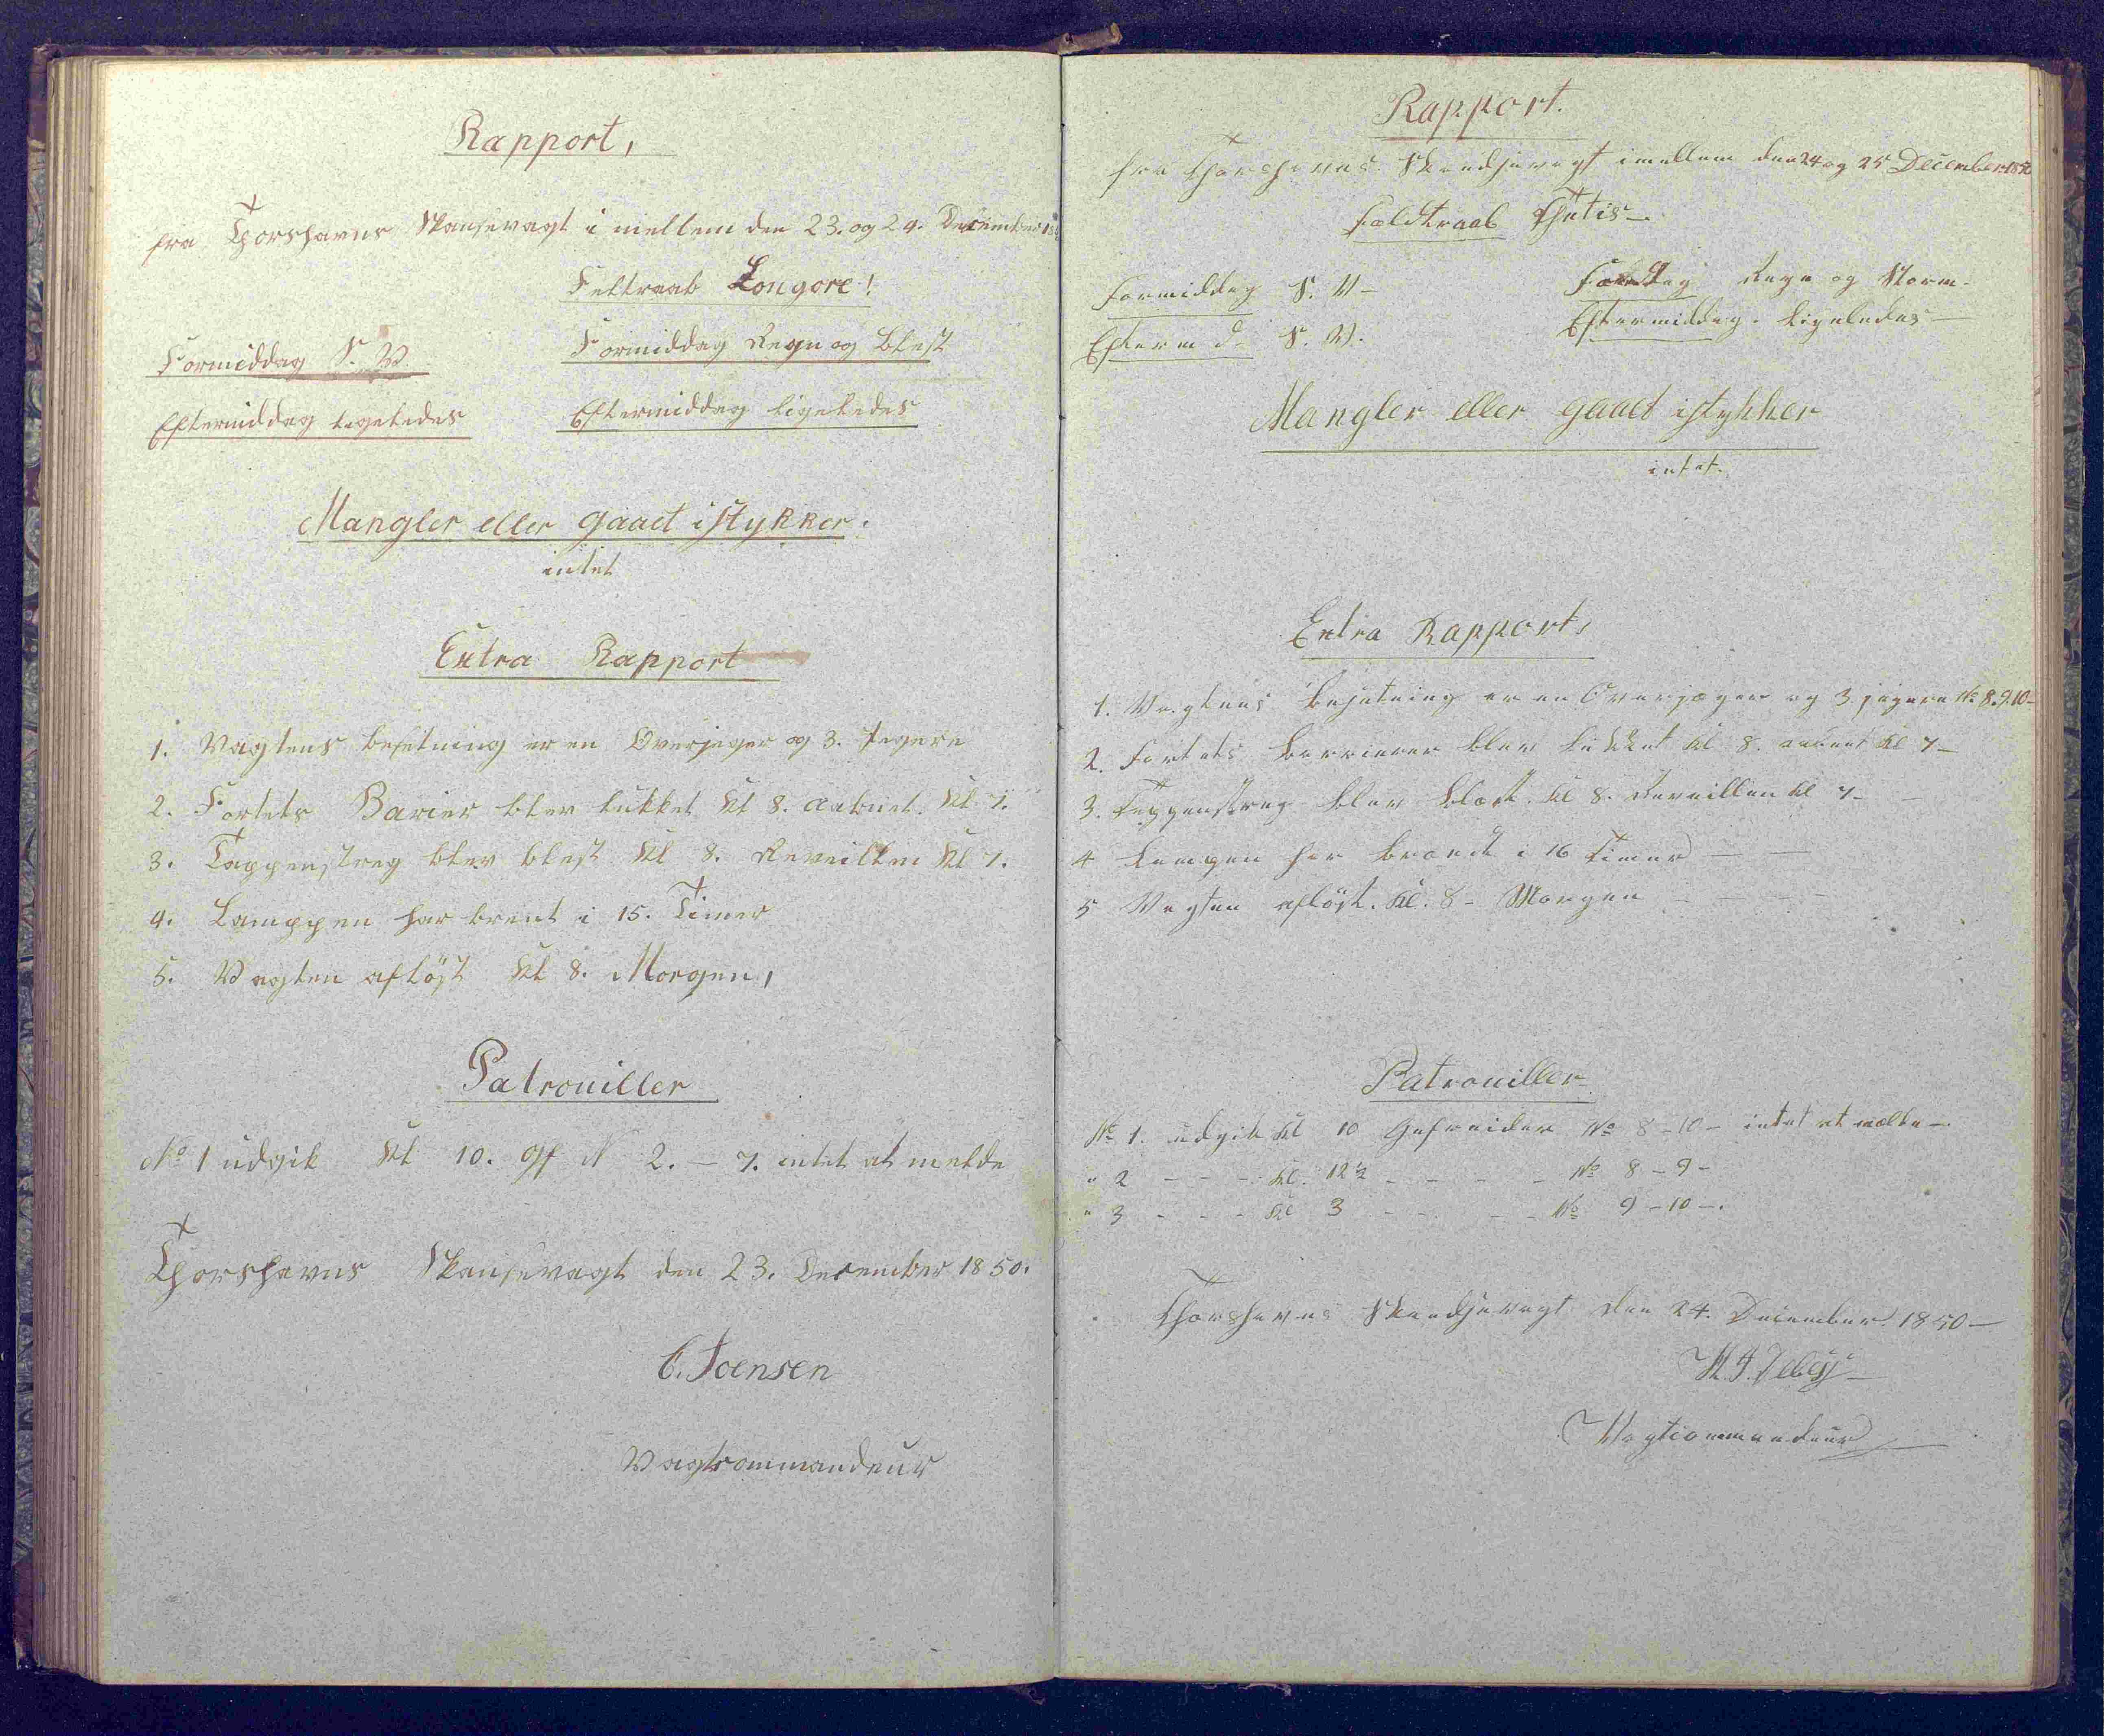 Rapport,
fra Thorshavns Skansevagt i mellem den 23. og 24. December
Feltraab Longore!
Formiddag S. W. Formiddag Regn og Blest
Eftermiddag ligeledes Eftermiddag ligeledes
Mangler eller gaaet istykker.
intet
Extra Rapport
1. Vagtens besetning er en Overjeger og 3. Jegere
2. Fortets Barier blev lukket Kl 8. aabnet. Kl 7.
3. Tappenstreg blev blest Kl 8. Reveillen Kl 7.
4. Lamppen har brent i 15. Timer
5. Vagten afløst Kl 8. Morgen,
Patrouiller
No 1 udgik Kl 10. Gf N 2. – 7. intet at melde
Thorshavns Skansevagt den 23. December 1850.
Joensen
Vagtcommandeur
Rapport.
fra Thorshavns Skandsevagt imellem den 24 og 25 December 1850
Feldtraab Thetis –
Formiddag S. V – Formdag Regn og Storm –
Efterm d. S. V. Eftermiddag. ligeledes –
Mangler eller gaaet istykker
intet.
Extra Rapport,
1. Vagtens besetning er en Overjæger og 3 jegere No 8. 9. 10 –
2. Fortets barrierer blev lukket Kl 8. aabnet Kl 7 –
3. Tappenstreg blev blæst. Kl 8. Reveillen Kl 7 – –
4 Lampen har brændt i 16 Timer – –
5 Vagten afløst. Kl. 8 – Morgen – – –
Patrouiller
No 1. udgik Kl 10 Gefreider No 8 – 10 – intet at melde –.
" 2 – – – Kl. 12½ – – – – No 8 – 9 –
" 3 – – – Kl 3 – – – – No 9 – 10 –.
Thorshavns Skandsevagt den 24. December 1850 –
Debess
Vagtcommandeur